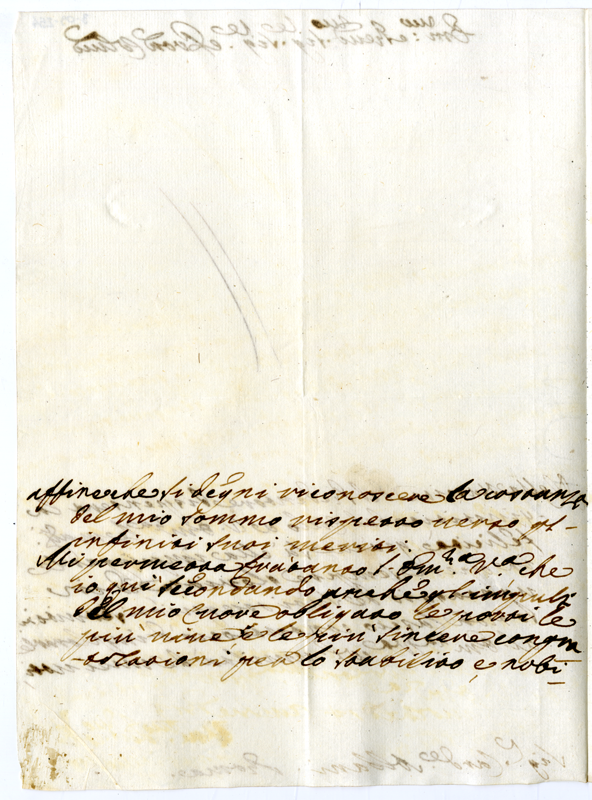 affinche si degni riconoscere la costanza
del mio sommo rispetto verso gl-
infiniti suoi meriti.
Mi permetta frattanto l'Em.za V.ra che
io quì secondando anche gl'impulsi
del mio Cuore obligato le porti le
più vive e le più sincere congra-
-tulazioni per lo stabilito, e nobi-